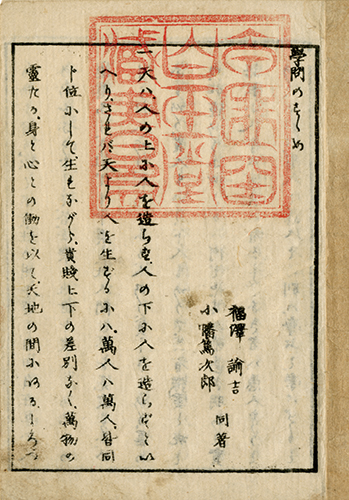 學問のすゝめ
福澤諭吉
小幡篤次郎
同著
一天ハ人の上に人を造らず人の下に人を造らずと言
へりされバ天より人を生ずるにハ萬人ハ萬人皆同
じ位にして生れながら貴賤上下の差別なく萬物の
靈たる身と心との働を以て天地の間にある